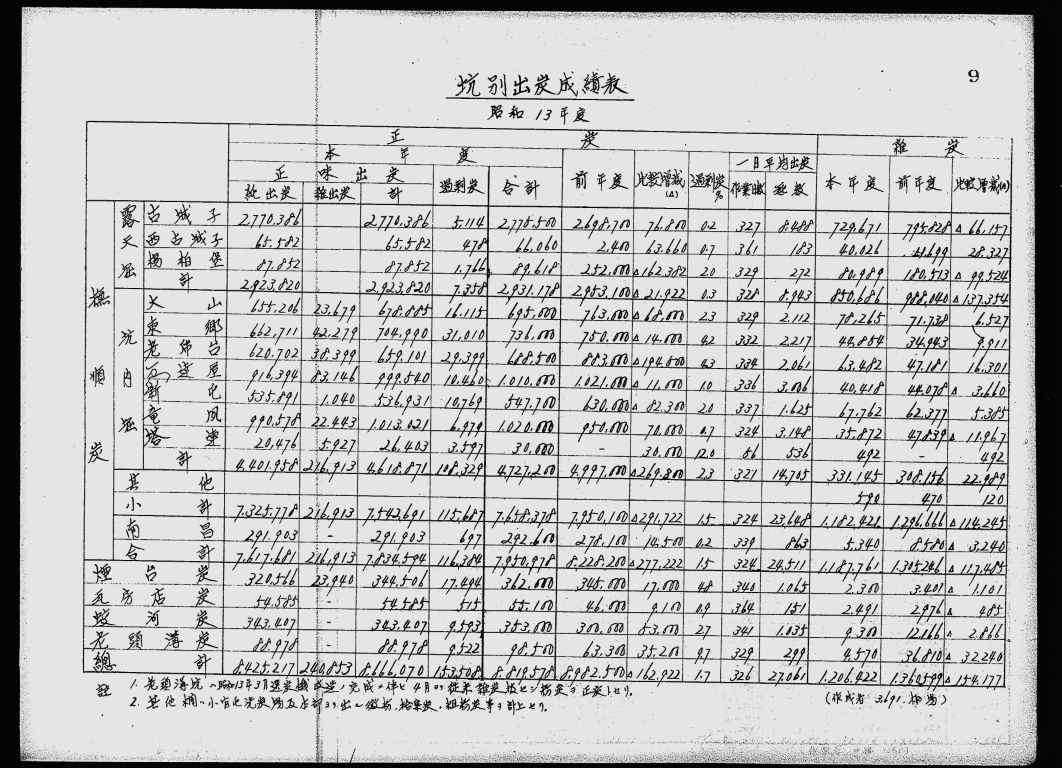 9
坑別出炭成績表
昭和13年度
正 炭 雑 炭
本 年 度 前年度 比較増減(△) 過剰炭% 一日平均出炭 本年度 前年度 比較増減(△)
正味出炭 過剰炭 合計 作業日数 屯数
純出炭 雑出炭 計
撫順炭
露天掘
古城子 2,770,386 2,770,386 5,114 2,775,500 2,698,700 76,800 0.2 327 8,488 729,671 795,828 △ 66,157
西古城子 65,582 65,582 478 66,060 2,400 63,660 0.7 361 183 40,026 11,699 28,327
楊柏堡 87,852 87,852 1,766 89,618 252,000 △ 162,382 2.0 329 272 80,989 180,513 △ 99,524
計 2,923,820 2,923,820 7,358 2,931,178 2,953,100 △ 21,922 0.3 328 8,943 850,686 988,040 △ 137,354
坑内掘
大山 655,206 23,679 678,885 16,115 695,000 763,000 △ 68,000 2.3 329 2,112 78,265 71,738 6,527
東郷 662,711 42,279 704,990 31,010 736,000 750,000 △ 14,000 4.2 332 2,217 44,854 34,943 9,911
老虎台 620,702 38,399 659,101 29,399 688,500 883,000 △ 194,500 4.3 334 2,061 63,482 47,181 16,301
万達屋 916,394 83,146 999,540 10,460 1,010,000 1,021,000 △ 11,000 1.0 336 3,006 40,418 44,078 △ 3,660
新屯 535,891 1,040 536,931 10,769 547,700 630,000 △ 82,300 2.0 337 1,625 67,762 62,377 5,385
竜凤 990,578 22,443 1,013,021 6,979 1,020,000 950,000 70,000 0.7 324 3,148 35,872 47,839 △ 11,967
塔連 20,476 5,927 26,403 3,597 30,000 - 30,000 12.0 56 536 492 - 492
計 4,401,958 216,913 4,618,871 108,329 4,727,200 4,997,000 △ 269,800 2.3 321 14,705 331,145 308,156 22,989
其他 590 470 120
小計 7,325,778 216,913 7,542,691 115,687 7,658,378 7,950,100 △ 291,722 1.5 324 23,648 1,182,421 1,296,666 △ 114,245
南昌 291,903 - 291,903 697 292,600 278,100 14,500 0.2 339 863 5,340 8,580 △ 3,240
合計 7,617,681 216,913 7,834,594 116,384 7,950,978 8,228,200 △ 277,222 1.5 324 24,511 1,187,761 1,305,246 △ 117,485
煙台炭 320,566 23,940 344,506 17,494 362,000 345,000 17,000 4.8 340 1,065 2,300 3,401 △ 1,101
瓦房店炭 54,585 - 54,585 515 55,100 46,000 9,100 0.9 364 151 2,491 2,976 △ 485
蛟河炭 343,407 - 343,407 9,593 353,000 300,000 53,000 2.7 341 1,035 9,300 12,166 △ 2,866
老頭溝炭 88,978 - 88,978 9,522 98,500 63,300 35,200 9.7 329 299 4,570 36,810 △ 32,240
總計 8,425,217 240,853 8,666,070 153,508 8,819,578 8,982,500 △ 162,922 1.7 326 27,061 1,206,422 1,360,599 △ 154,177
註 1. 老頭溝坑ハ昭和13年3月選炭機
2. 其他欄ハ
(作成者 3,691